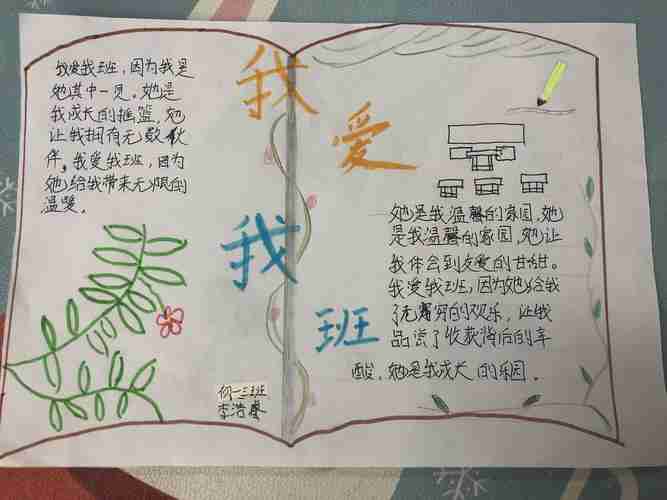 我爱我班，因为我是
她其中一员。她是
我成长的摇篮，她
让我拥有无数伙
伴。我爱我班，因为
她给我带来无限的
温暖。
我
爱
我
班
她是我温馨的家园，她
是我温馨的家园，她让
我体会到友爱的甘甜。
我爱我班，因为她给我
了无穷的欢乐，让我
品尝了收获背后的辛
酸，她是我成长的乐园。
一三班
李浩